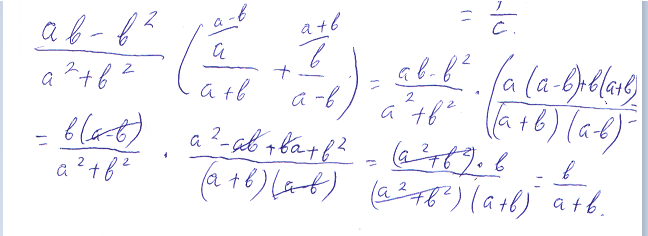 = 1/c.
(ab - b²)/(a² + b²) (a/(a+b) [a-b] + b/(a-b) [a+b]) = (ab - b²)/(a² + b²) · (a(a-b)+b(a+b))/((a+b)(a-b)) =
= b(a-b)/(a² + b²) · (a² - ab + ba + b²)/((a+b)(a-b)) = (a² + b²)·b/((a² + b²)(a+b)) = b/(a+b).